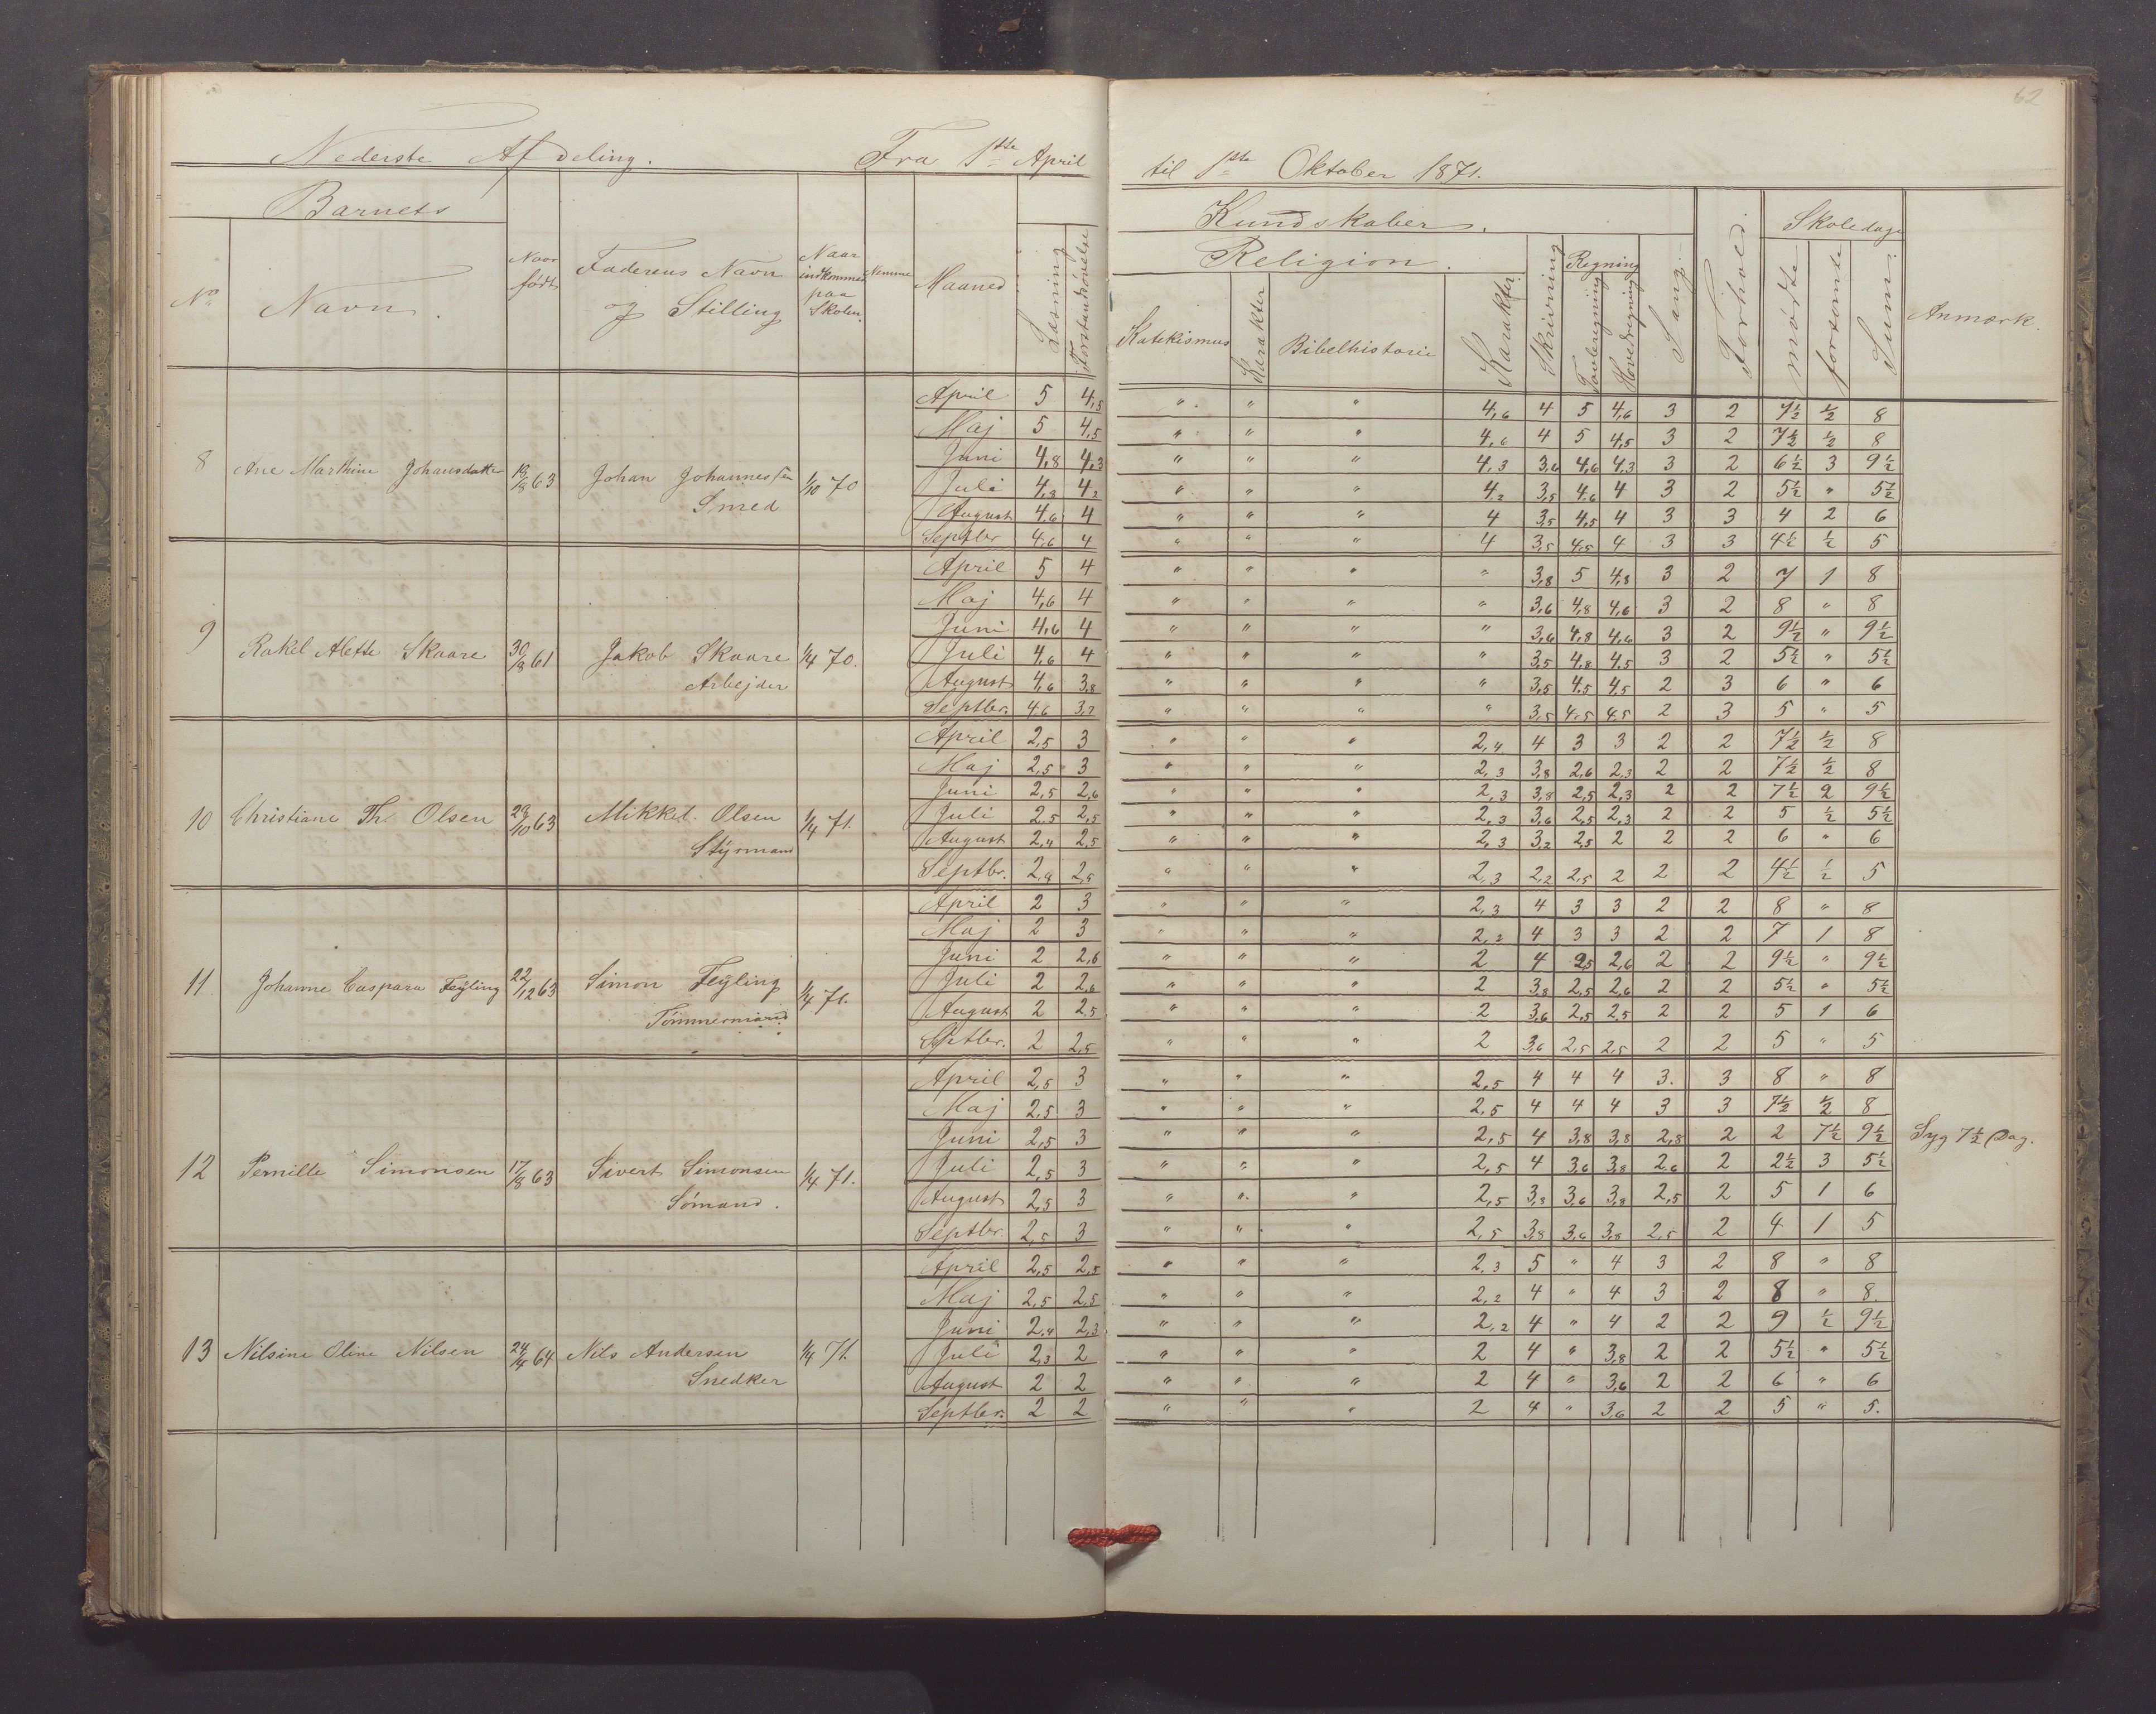 62
Nederste Afdeling. Fra 1ste April til 1ste Oktober 1871.
Barnets Kundskaber. Skoledage
No Navn. Naar født Faderens Navn og Stilling Naar indkommen paa Skolen. Nemme Maaned Læsning Forstandsøvelse Religion. Katekismus Karakter Bibelhistorie Karakter Skrivning Regning Tavleregning Hovedregning Sang. Forhold. mødte forsømte Sum. Anmærk.
April 5 4,5 " " " 4,6 4 5 4,6 3 2 7½ ½ 8
Maj 5 4,5 " " " 4,6 4 5 4,5 3 2 7½ ½ 8
Juni 4,8 4,3 " " " 4,3 3,6 4,6 4,3 3 2 6½ 3 9½
8 Ane Marthine Johansdatter 19/8 63 Johan Johannessen 1/10 70 Juli 4,8 4,2 " " " 4,2 3,5 4,6 4 3 2 5½ " 5½
Smed August 4,6 4 " " " 4 3,5 4,5 4 3 3 4 2 6
Septbr 4,6 4 " " " 4 3,5 4,5 4 3 3 4½ ½ 5
April 5 4 " " " " 3,8 5 4,8 3 2 7 1 8
Maj 4,6 4 " " " " 3,6 4,8 4,6 3 2 8 " 8
Juni 4,6 4 " " " " 3,6 4,8 4,6 3 2 9½ " 9½
9 Rakel Alette Skaare 30/8 61 Jakob Skaare 1/4 70. Juli 4,6 4 " " " " 3,5 4,8 4,5 3 2 5½ " 5½
Arbejder August 4,6 3,8 " " " " 3,5 4,5 4,5 2 3 6 " 6
Septbr. 4,6 3,7 " " " " 3,5 4,5 4,5 2 3 5 " 5
April 2,5 3 " " " 2,4 4 3 3 2 2 7½ ½ 8
Maj 2,5 3 " " " 2,3 3,8 2,6 2,3 2 2 7½ ½ 8
Juni 2,5 2,6 " " " 2,3 3,8 2,5 2,3 2 2 7½ 2 9½
10 Christiane Th. Olsen 29/10 63 Mikkel Olsen 1/4 71. Juli 2,5 2,5 " " " 2,3 3,6 2,5 2,3 2 2 5 ½ 5½
Styrmand August 2,4 2,5 " " " 2,3 3,2 2,5 2 2 2 6 " 6
Septbr. 2,4 2,5 " " " 2,3 2,2 2,5 2 2 2 4½ ½ 5
April 2 3 " " " 2,3 4 3 3 2 2 8 " 8
Maj 2 3 " " " 2,2 4 3 3 2 2 7 1 8
Juni 2 2,6 " " " 2 4 2,5 2,6 2 2 9½ " 9½
11. Johanne Caspara Feÿling 22/12 63 Simon Feÿling 1/4 71. Juli 2 2,6 " " " 2 3,8 2,5 2,6 2 2 5½ " 5½
Tømmermand August 2 2,5 " " " 2 3,6 2,5 2,5 2 2 5 1 6
Septbr. 2 2,5 " " " 2 3,6 2,5 2,5 2 2 5 " 5
April 2,5 3 " " " 2,5 4 4 4 3. 3 8 " 8
Maj 2,5 3 " " " 2,5 4 4 4 3 3 7½ ½ 8
Juni 2,5 3 " " " 2,5 4 3,8 3,8 2,8 2 2 7½ 9½ Syg 7½ Dag.
12 Pernille Simonsen 17/8 63 Sivert Simonsen 1/4 71. Juli 2,5 3 " " " 2,5 4 3,6 3,8 2,6 2 2½ 3 5½
Sømand. August 2,5 3 " " " 2,5 3,8 3,6 3,8 2,5 2 5 1 6
Septbr. 2,5 3 " " " 2,5 3,8 3,6 3,8 2,5 2 4 1 5
April 2,5 2,5 " " " 2,3 5 " 4 3 2 8 " 8
Maj 2,5 2,5 " " " 2,2 4 " 4 3 2 8 " 8.
Juni 2,4 2,3 " " " 2,2 4 " 4 2 2 9 ½ 9½
13 Nilsine Oline Nilsen 24/4 64 Nils Andersen 1/4 71. Juli 2,3 2 " " " 2 4 " 3,8 2 2 5½ " 5½
Snedker August 2 2 " " " 2 4 " 3,6 2 2 6 " 6
Septbr. 2 2 " " " 2 4 " 3,6 2 2 5 " 5.